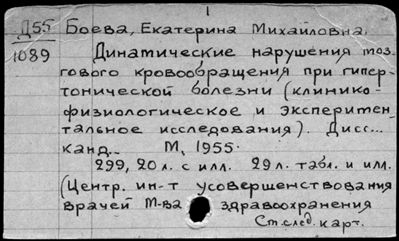 1
Д55 Боева, Екатерина Михайловна.
1089 Динамические нарушения моз-
гового кровообращения при гипер-
тонической болезни (клинико-
физиологическое и эксперимен-
тальное исследования). Дисс...
канд... М, 1955.
299, 20 л. с илл. 29 л. табл. и илл.
(Центр. ин-т усовершенствования
врачей М-ва здравоохранения
См. след. карт.